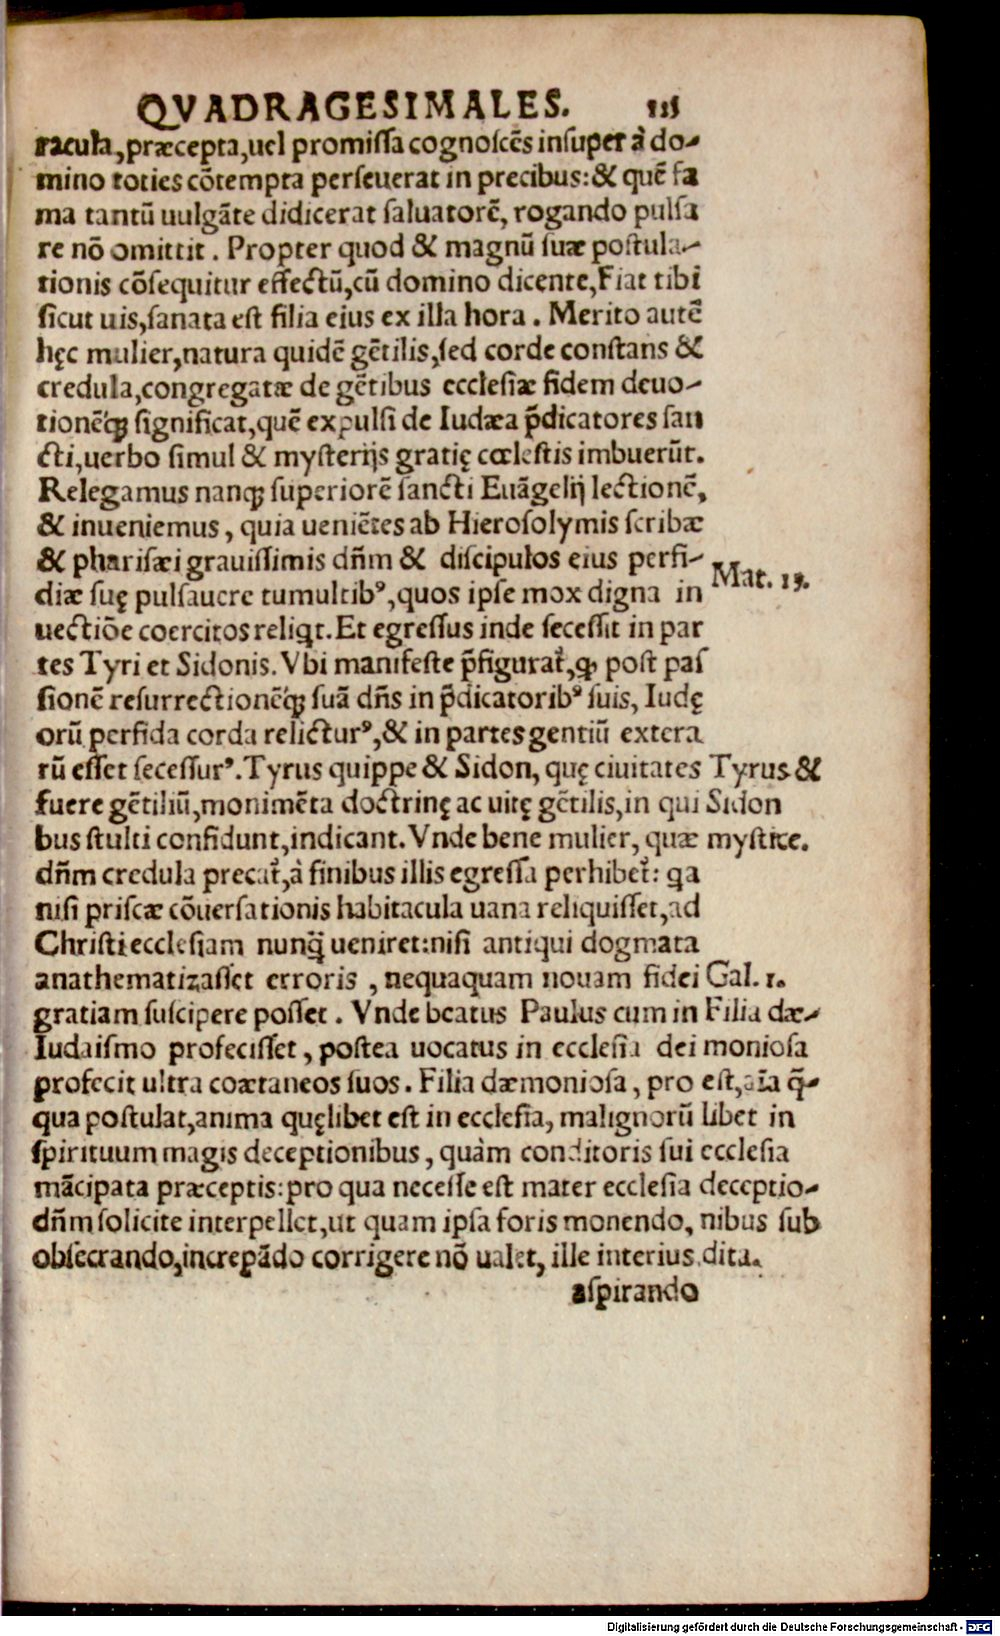 QVADRAGESIMALES. 115
racula, præcepta, uel promissa cognoscẽs insuper à do-
mino toties cõtempta perseuerat in precibus: & quẽ fa
ma tantũ uulgãte didicerat saluatorẽ, rogando pulsa
re nõ omittit. Propter quod & magnũ suæ postula-
tionis cõsequitur effectũ, cũ domino dicente, Fiat tibi
sicut uis, sanata est filia eius ex illa hora. Merito autẽ
hęc mulier, natura quidẽ gẽtilis, sed corde constans &
credula, congregatæ de gẽtibus ecclesiæ fidem deuo-
tionẽq́; significat, quẽ expulsi de Iudæa p̃dicatores san
cti, uerbo simul & mysterijs gratię cœlestis imbuerũt.
Relegamus nanq; superiorẽ sancti Euãgelij lectionẽ,
& inueniemus, quia ueniẽtes ab Hierosolymis scribæ
& pharisæi grauissimis dñm & discipulos eius perfi-
diæ suę pulsauere tumultibꝰ, quos ipse mox digna in
uectiõe coercitos reliqt. Et egressus inde secessit in par
tes Tyri et Sidonis. Vbi manifeste p̃figurat̃, ꝙ post pas
sionẽ resurrectionẽq́; suã dñs in p̃dicatoribꝰ suis, Iudę
orũ perfida corda relicturꝰ, & in partes gentiũ extera
rũ esset secessurꝰ. Tyrus quippe & Sidon, quę ciuitates
fuere gẽtiliũ, monimẽta doctrinę ac uitę gẽtilis, in qui
bus stulti confidunt, indicant. Vnde bene mulier, quæ
dñm credula precat̃, à finibus illis egressa perhibet̃: qa
nisi priscæ cõuersationis habitacula uana reliquisset, ad
Christi ecclesiam nunq̃ ueniret: nisi antiqui dogmata
anathematizasset erroris, nequaquam nouam fidei
gratiam suscipere posset. Vnde beatus Paulus cum in
Iudaismo profecisset, postea uocatus in ecclesia dei
profecit ultra coætaneos suos. Filia dæmoniosa, pro
qua postulat, anima quęlibet est in ecclesia, malignorũ
spirituum magis deceptionibus, quàm conditoris sui
mãcipata præceptis: pro qua necesse est mater ecclesia
dñm solicite interpellet, ut quam ipsa foris monendo,
obsecrando, increpãdo corrigere nõ ualet, ille interius
aspirando
Mat. 15.
Tyrus &
Sidon
mystice.
Gal. 1.
Filia dæ-
moniosa
est, aĩa q̃-
libet in
ecclesia
deceptio-
nibus sub
dita.
Digitalisierung gefördert durch die Deutsche Forschungsgemeinschaft - DFG